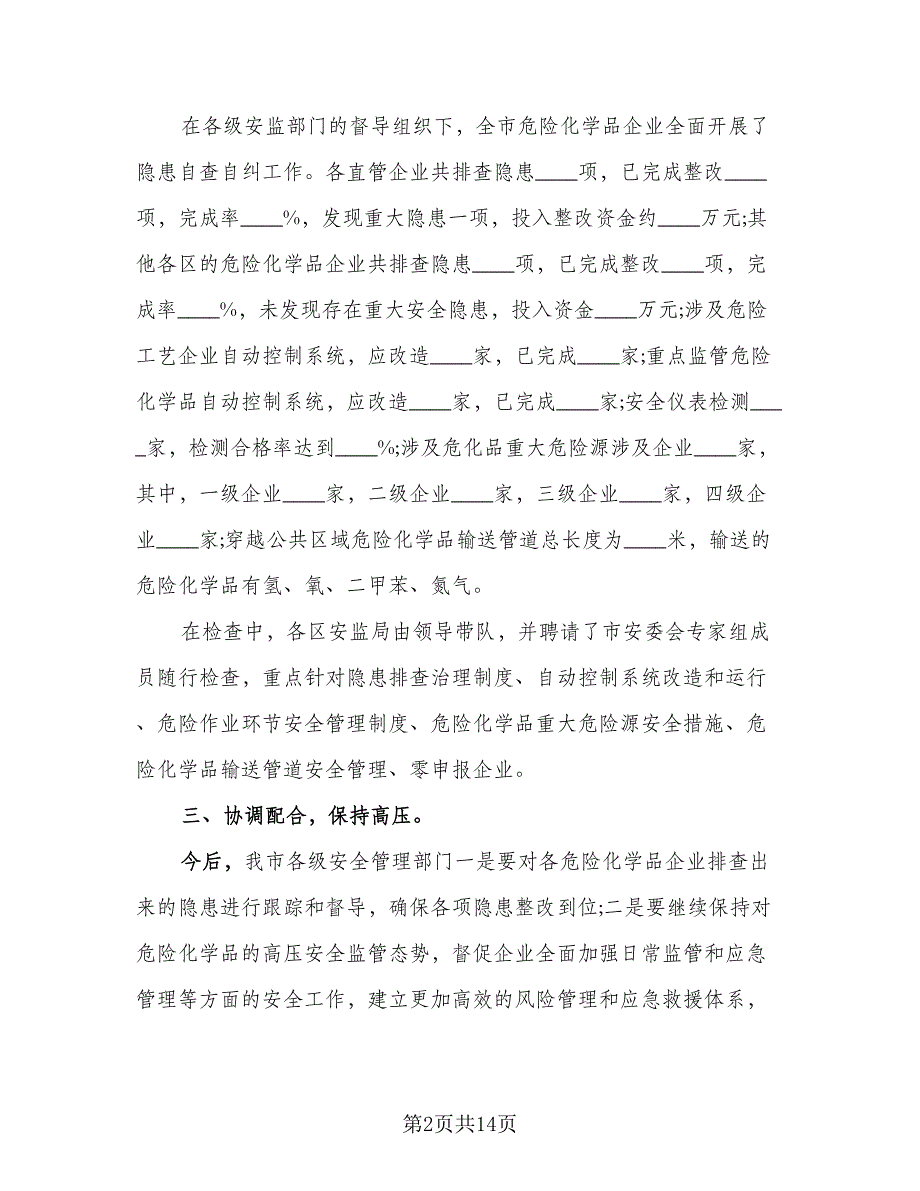 在各级安监部门的督导组织下，全市危险化学品企业全面开展了
隐患自查自纠工作。各直管企业共排查隐患____项，已完成整改____
项，完成率____%，发现重大隐患一项，投入整改资金约____万元;其
他各区的危险化学品企业共排查隐患____项，已完成整改____项，完
成率____%，未发现存在重大安全隐患，投入资金____万元;涉及危险
工艺企业自动控制系统，应改造____家，已完成____家;重点监管危险
化学品自动控制系统，应改造____家，已完成____家;安全仪表检测___
_家，检测合格率达到____%;涉及危化品重大危险源涉及企业____家，
其中，一级企业____家，二级企业____家，三级企业____家，四级企
业____家;穿越公共区域危险化学品输送管道总长度为____米，输送的
危险化学品有氢、氧、二甲苯、氮气。
在检查中，各区安监局由领导带队，并聘请了市安委会专家组成
员随行检查，重点针对隐患排查治理制度、自动控制系统改造和运行
、危险作业环节安全管理制度、危险化学品重大危险源安全措施、危
险化学品输送管道安全管理、零申报企业。
三、协调配合，保持高压。
今后，我市各级安全管理部门一是要对各危险化学品企业排查出
来的隐患进行跟踪和督导，确保各项隐患整改到位;二是要继续保持对
危险化学品的高压安全监管态势，督促企业全面加强日常监管和应急
管理等方面的安全工作，建立更加高效的风险管理和应急救援体系，
第2页共14页